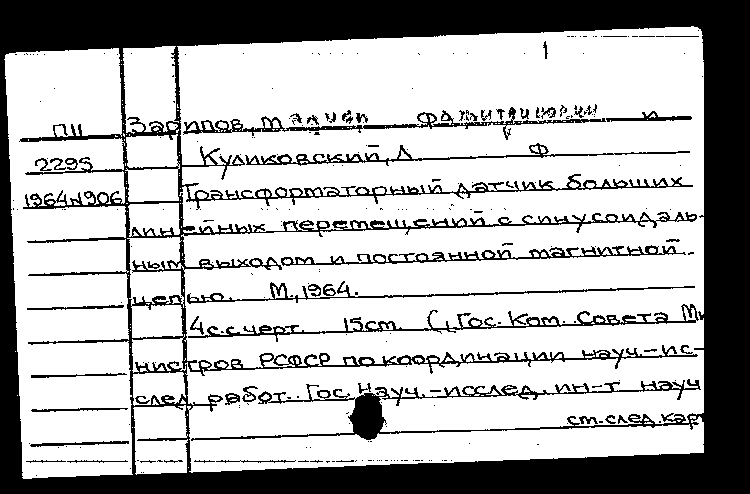 1
П11 Зарипов, Мадияр и
2295 Куликовский, Л Ф
1964 N906 Трансформаторный датчик больших
линейных перемещений с синусоидаль-
ным выходом и постоянной магнитной
цепью. М., 1964.
4с.с черт. 15cm. (Гос. Ком. Совета Ми
нистров РСФСР по координации науч.-ис-
след. работ. Гос. Науч.-исслед. ин-т науч
ст. след. карт